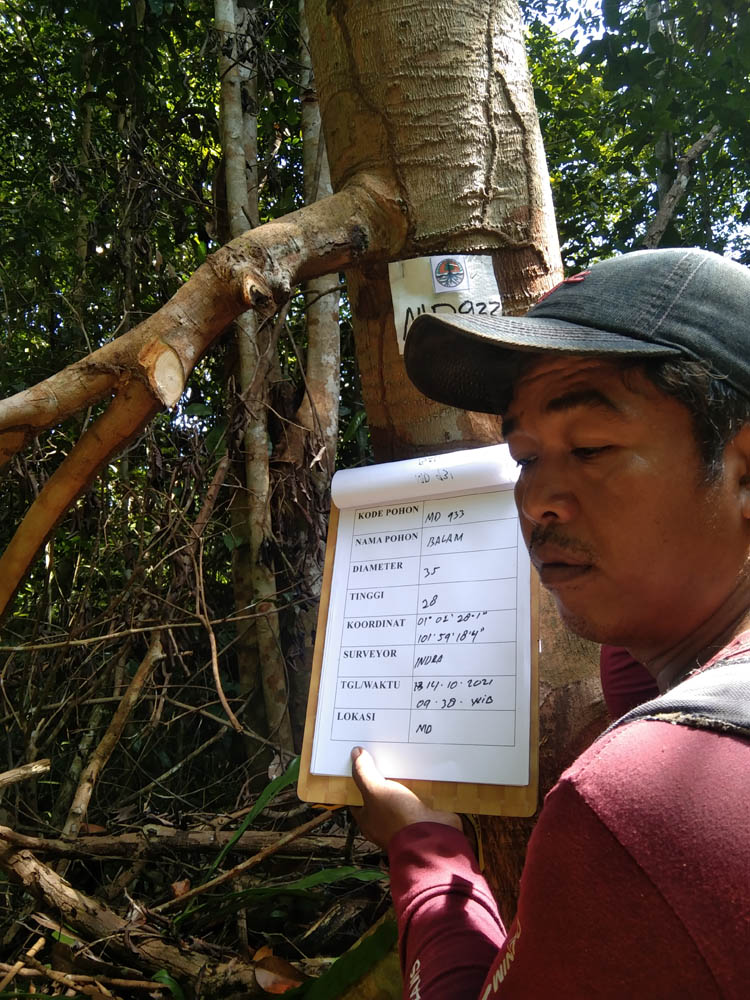 MD933
KODE POHON MD 933
NAMA POHON BALAM
DIAMETER 35
TINGGI 28
KOORDINAT 01° 01' 28.1"
101° 59' 18.4"
SURVEYOR INDRA
TGL/WAKTU 14.10.2021
09.38. WIB
LOKASI MD